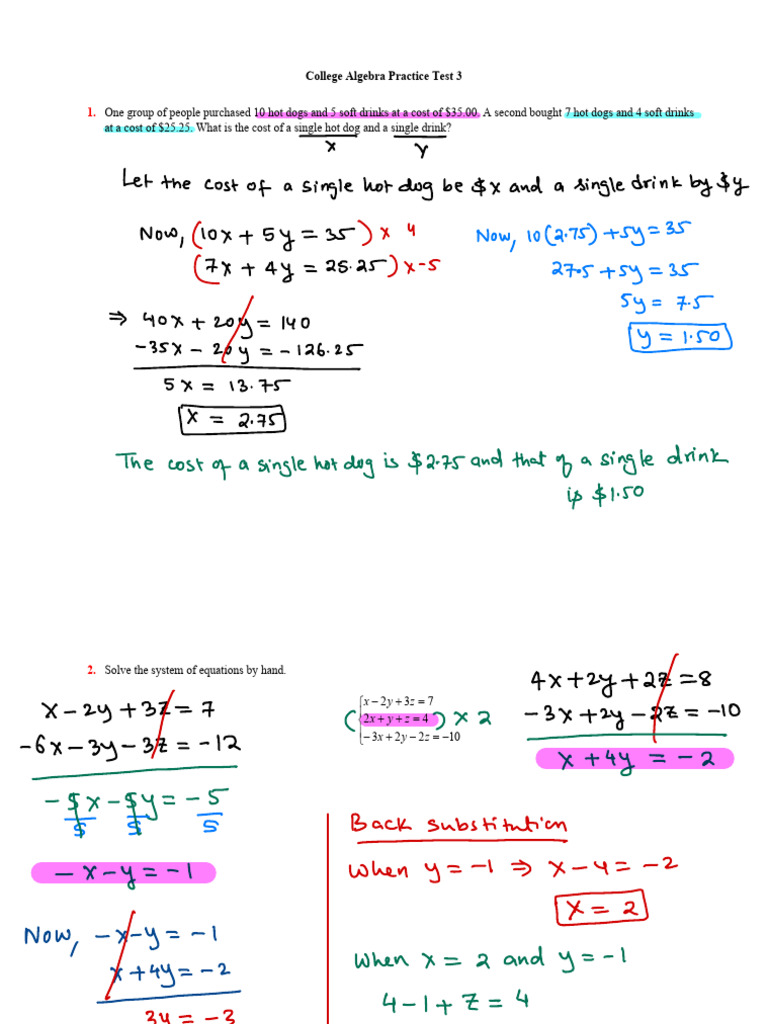 College Algebra Practice Test 3
1. One group of people purchased 10 hot dogs and 5 soft drinks at a cost of $35.00. A second bought 7 hot dogs and 4 soft drinks
at a cost of $25.25. What is the cost of a single hot dog and a single drink?
x y
Let the cost of a single hot dog be $x and a single drink by $y
Now, (10x + 5y = 35) x 4
(7x + 4y = 25.25) x -5
⇒ 40x + 20y = 140
-35x - 20y = -126.25
5x = 13.75
x = 2.75
Now, 10(2.75) + 5y = 35
27.5 + 5y = 35
5y = 7.5
y = 1.50
The cost of a single hot dog is $2.75 and that of a single drink
is $1.50
2. Solve the system of equations by hand.
x - 2y + 3z = 7
(2x + y + z = 4) x 2
-3x + 2y - 2z = -10
x - 2y + 3z = 7
-6x - 3y - 3z = -12
-5x - 5y = -5
5 5 5
-x - y = -1
Now, -x - y = -1
x + 4y = -2
3y = -3
4x + 2y + 2z = 8
-3x + 2y - 2z = -10
x + 4y = -2
Back substitution
When y = -1 ⇒ x - 4 = -2
x = 2
When x = 2 and y = -1
4 - 1 + z = 4